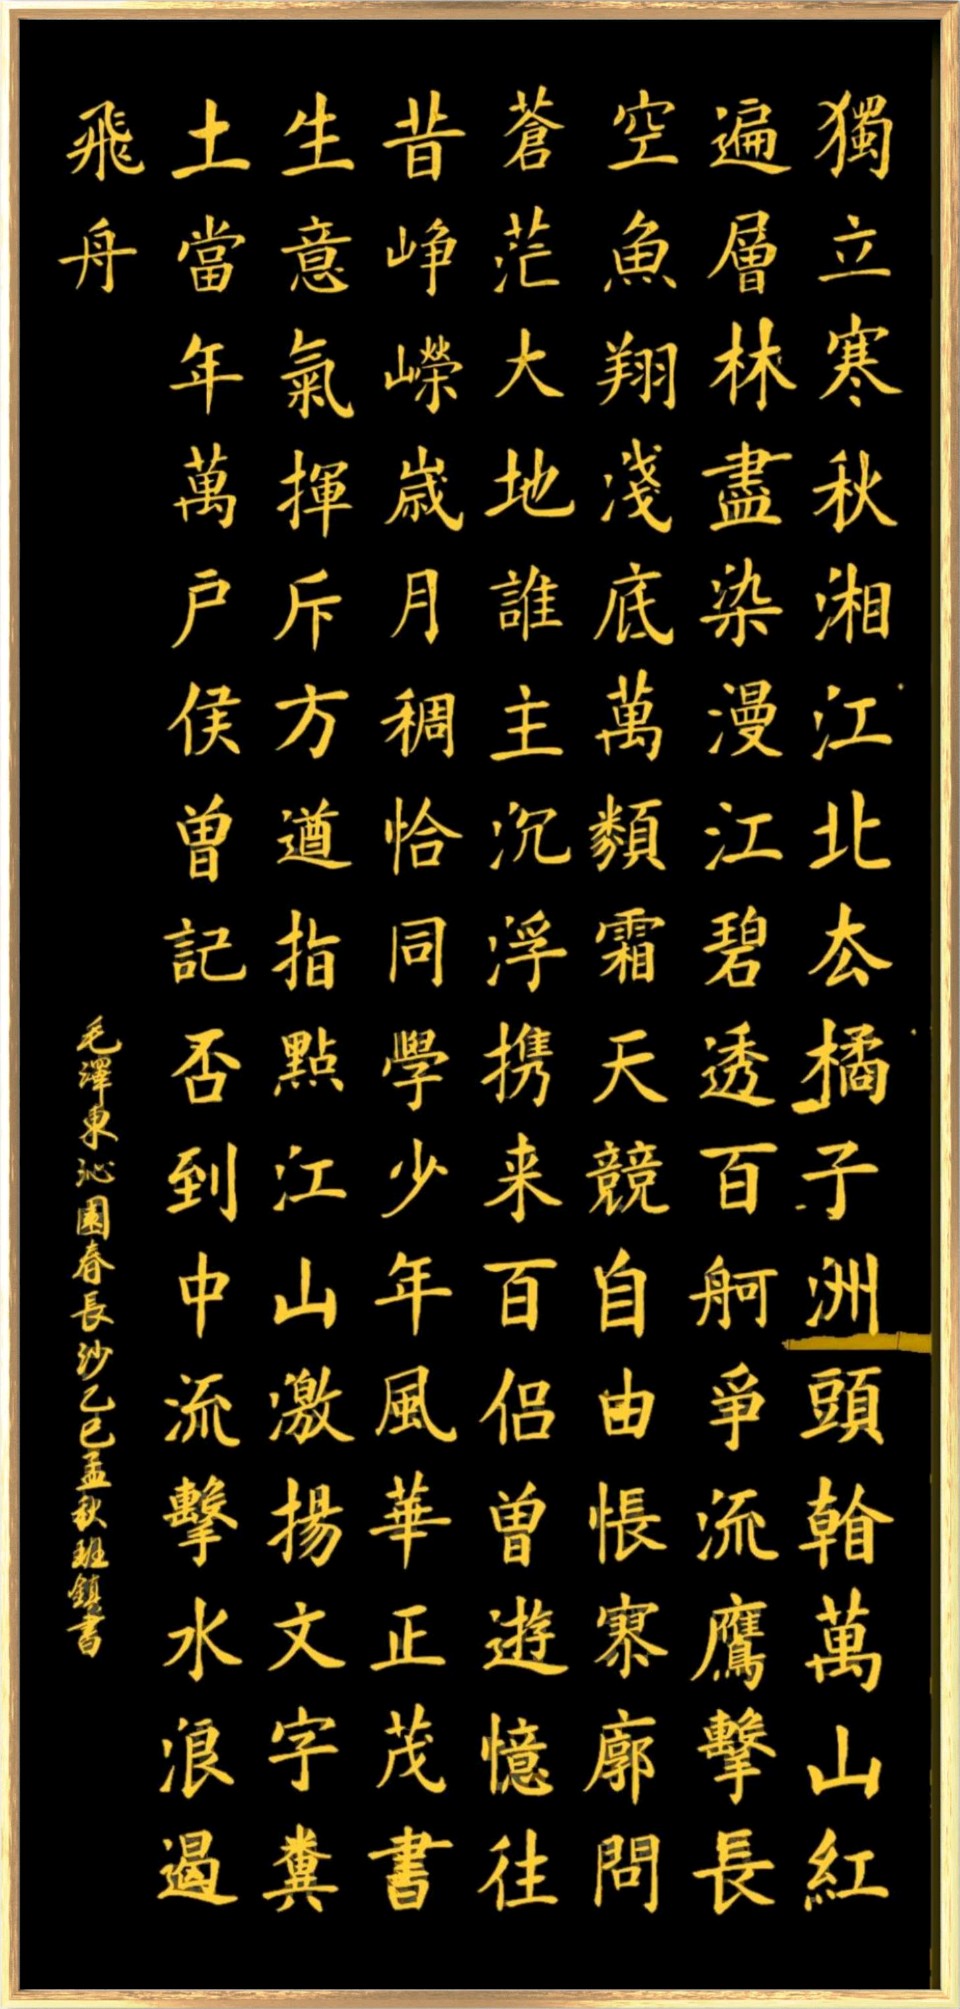 獨立寒秋湘江北去橘子洲頭翰萬山紅
遍層林盡染漫江碧透百舸爭流鷹擊長
空魚翔淺底萬類霜天競自由悵寥廓問
蒼茫大地誰主沉浮携来百侶曾遊憶往
昔崢嶸歲月稠恰同學少年風華正茂書
生意氣揮斥方遒指點江山激揚文字糞
土當年萬户侯曾記否到中流擊水浪遏
飛舟
毛澤東沁園春長沙乙巳孟秋班鎮書